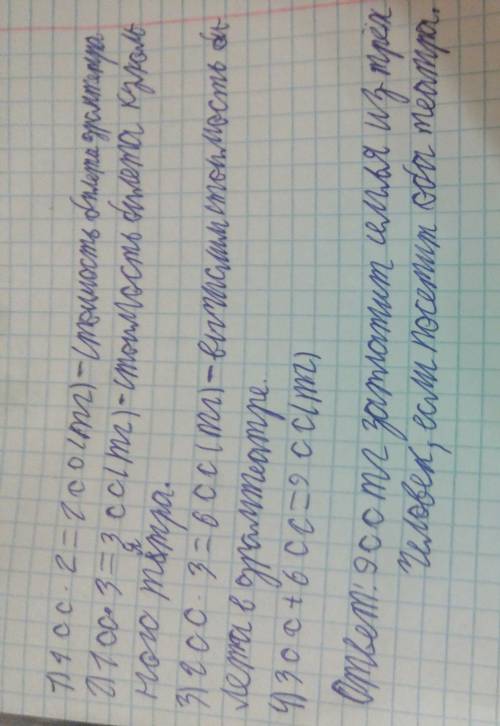 1) 1 сс · 2 = 2 со (тг) – стоимость билета драмтеатра
2) 1 сс · 3 = 3 сс (тг) – стоимость билета куколь
ного театра.
3) 2 сс · 3 = 6 сс (тг) – вычислим стоимость би
лета в драмтеатре.
4) 3 сс + 6 сс = 9 сс (тг)
Ответ: 9 сс тг заплатит семья из трёх
человек, если посетит оба театра.